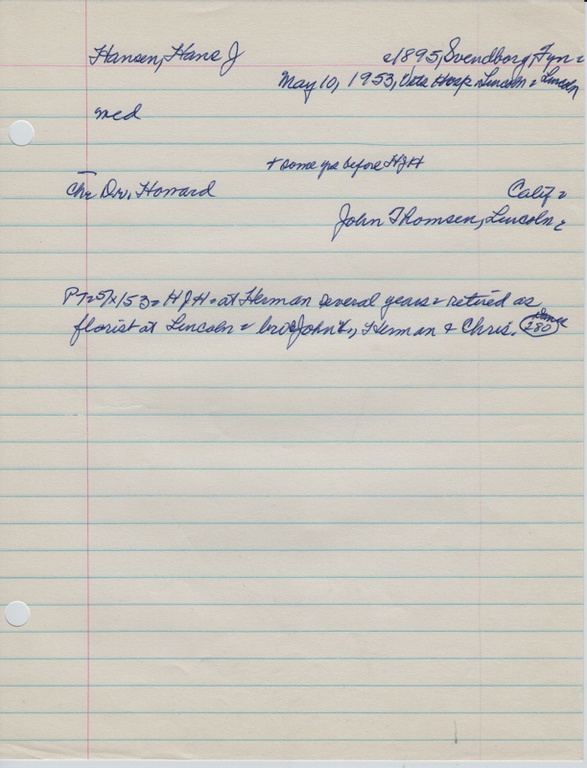 Hansen, Hans J c1895, Svendborg, Fyn =
May 10, 1953, Vets Hosp Lincoln = Lincoln
med
+ some yrs before HJH
Chr Dr., Howard Calif =
John Thomsen, Lincoln =
PT=5/x/53= HJH = at Herman several years = retired as
florist at Lincoln = bros John K, Herman & Chris. 280